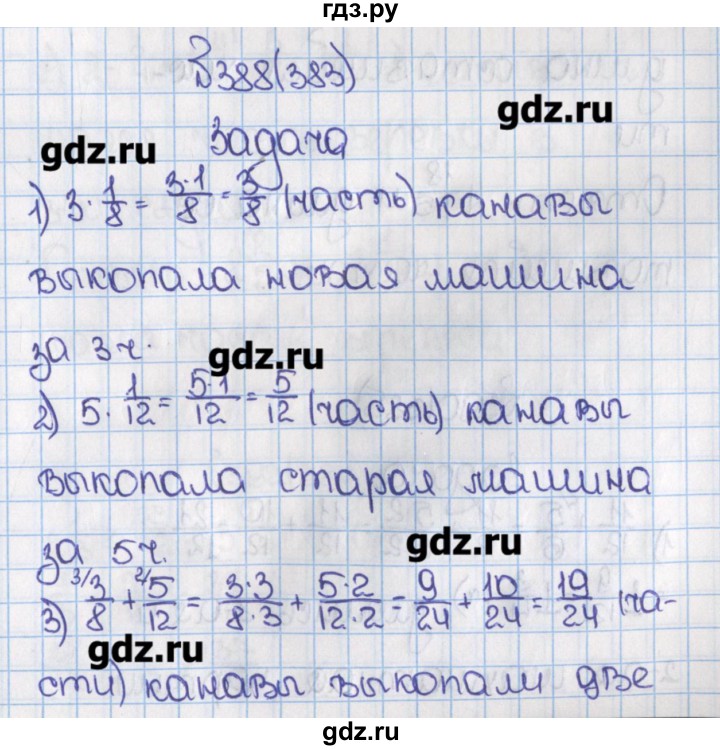 гдз.ру
№388(383)
gdz.ru
Задача
gdz.ru
1) 3·1/8 = 3·1/8 = 3/8 (часть) канавы
выкопала новая машина
за 3 ч.
gdz.ru
2) 5·1/12 = 5·1/12 = 5/12 (часть) канавы
выкопала старая машина
за 5 ч.
gdz.ru
3) 3/ 3/8 + 2/ 5/12 = 3·3/8·3 + 5·2/12·2 = 9/24 + 10/24 = 19/24 (ча-
gdz.ru
сти) канавы выкопали две
gdz.ru